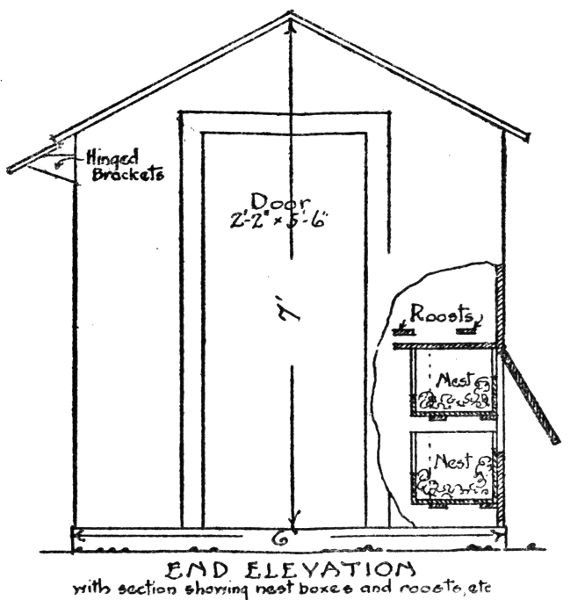 Hinged
Brackets
Door
2'-2" × 5'-6"
7'
Roosts
Nest
Nest
6'
END ELEVATION
with section showing nest boxes and roosts, etc